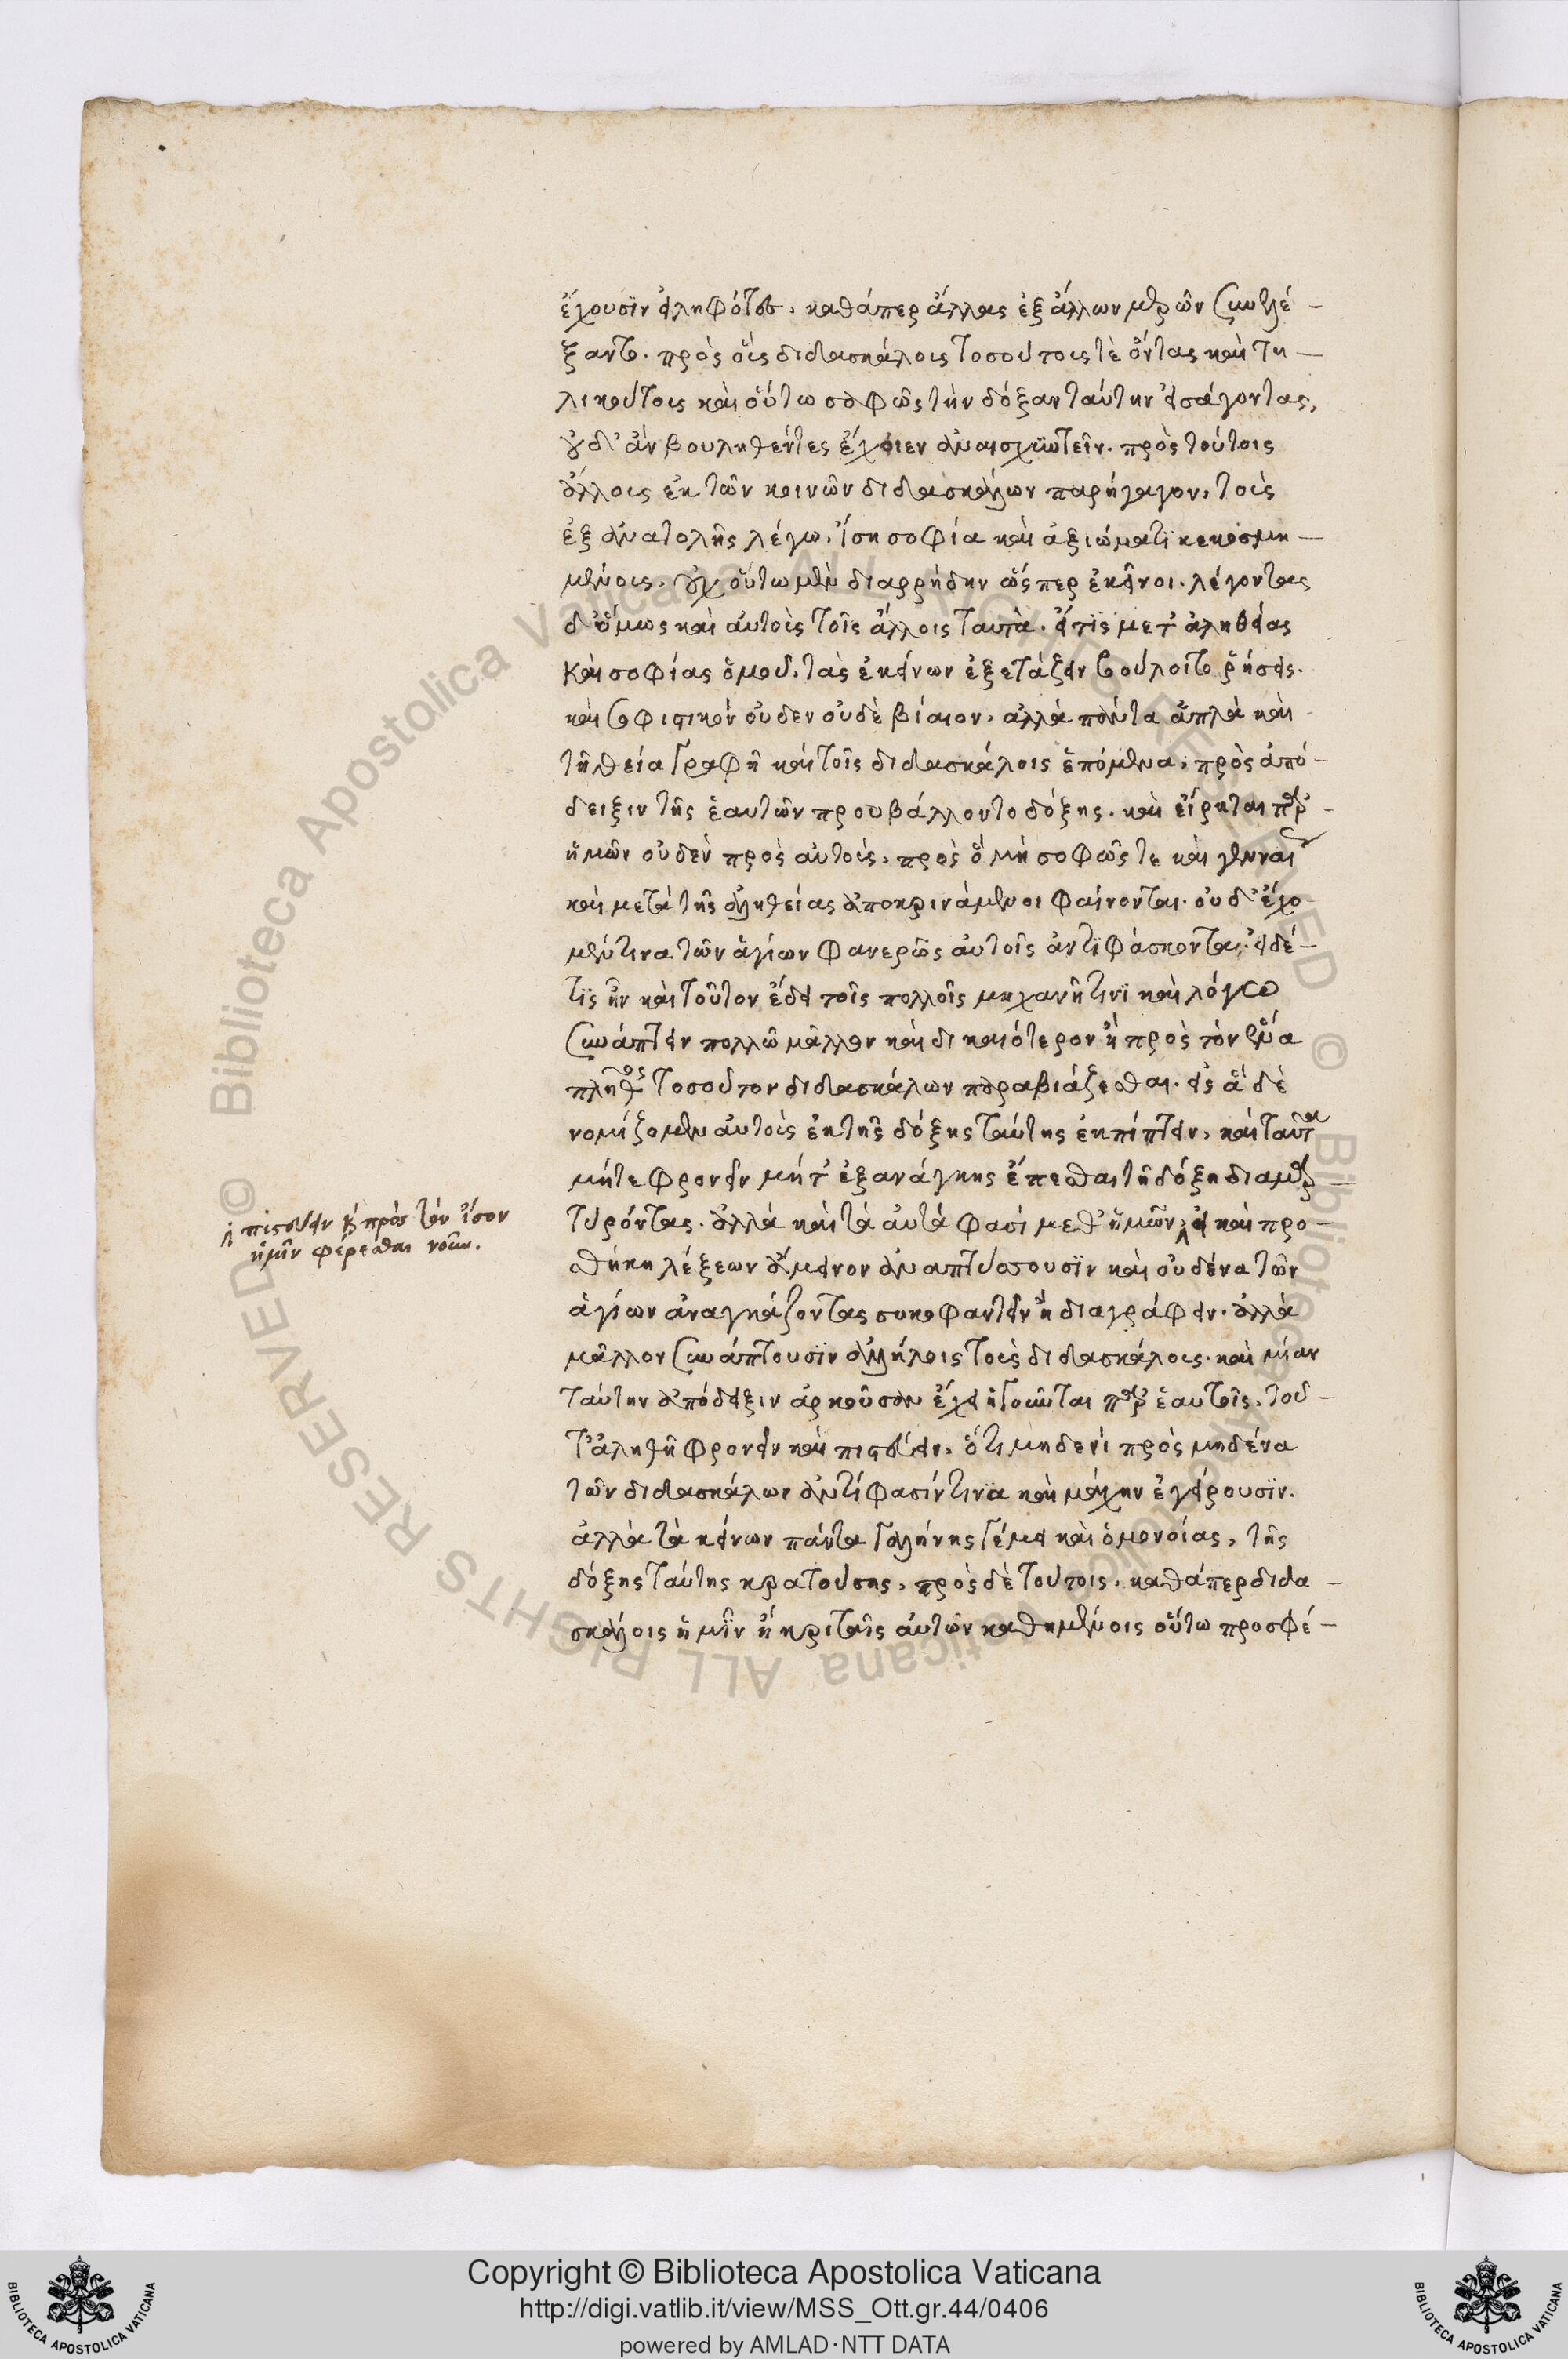 ἔχουσιν εἰληφότες, καθάπερ ἄλλας ἐξ ἄλλων μερῶν συλλέ-
ξαντες. πρὸς οἷς διδασκάλοις τοσούτοις τὲ ὄντας καὶ τη-
λικούτοις καὶ οὕτω σοφῶς τὴν δόξαν ταύτην εἰσάγοντας,
οὐδ' ἂν βουληθέντες ἔχοιεν ἀναισχυντεῖν. πρὸς τούτοις
ἄλλοις ἐκ τῶν κοινῶν διδασκάλων παρήγαγον, τοὺς
ἐξ ἀνατολῆς λέγω, ἴση σοφία καὶ ἀξιώματι κεκοσμη-
μένοις. οὐχ οὕτω μὲν διαρρήδην ὥσπερ ἐκεῖνοι. λέγοντας
δ' ὅμως καὶ αὐτοὺς τοῖς ἄλλοις ταυτὰ. εἴ τις μετ' ἀληθείας
καὶ σοφίας ὁμοῦ, τὰς ἐκείνων ἐξετάζειν βούλοιτο ῥήσεις.
καὶ σοφιστικόν οὐδεν οὐδὲ βίαιον, ἀλλὰ πάντα ἁπλὰ καὶ
τῆ θεία γραφῆ καὶ τοῖς διδασκάλοις ἑπόμενα, πρὸς ἀπό-
δειξιν τῆς ἑαυτῶν προυβάλλοντο δόξης. καὶ εἴρηται παρ'
ἡμῶν οὐδὲν πρὸς αὐτοὺς, πρὸς ὃ μὴ σοφῶς τε καὶ γενναί
καὶ μετὰ τῆς ἀληθείας ἀποκρινάμενοι φαίνονται. οὐδ' ἔχο
μέν τινα τῶν ἁγίων φανερῶς αὐτοῖς ἀντιφάσκοντας. εἰ δέ-
τις ἦν καὶ τοῦτον ἔδει τοῖς πολλοῖς μηχανῆ τινὶ καὶ λόγω
συνάπτειν πολλῶ μᾶλλον καὶ δικαιότερον ἢ πρὸς τὸν ἕνα
πλῆθος τοσοῦτον διδασκάλων παραβιάζεσθαι. εἰς ἃ δὲ
νομίζομεν αὐτοὺς ἐκ τῆς δόξης ταύτης ἐκπίπτειν, καὶ ταῦτα
μήτε φρονεῖν μήτ' ἐξανάγκης ἕπεσθαι τῆ δόξη διαμαρ-
τυρόντας. ἀλλὰ καὶ τὰ αὐτά φασί μεθ' ἡμῶν, εἰ καὶ προ-
θήκη λέξεων ἄμεινον ἀναπτύσσουσιν καὶ οὐδένα τῶν
ἁγίων ἀναγκάζοντας συκοφαντεῖν ἢ διαγράφειν. ἀλλὰ
μᾶλλον συνάπτουσιν ἀλλήλοις τοὺς διδασκάλοις. καὶ μίαν
ταύτην ἀπόδειξιν ἀρκοῦσαν ἔχει ἡγοῦνται παρ' ἑαυτοῖς, τοῦ-
τ' ἀληθῆ φρονεῖν καὶ πιστεύειν, ὅτι μηδενὶ πρὸς μηδένα
τῶν διδασκάλων ἀντίφασίν τινα καὶ μάχην ἐγείρουσιν.
ἀλλὰ τὰ κείνων πάντα γαλήνης γέμει καὶ ὁμονοίας, τῆς
δόξης ταύτης κρατούσης, πρὸς δὲ τούτοις, καθάπερ διδα-
σκάλοις ἡμῖν ἢ κριταῖς αὐτῶν καθημένοις οὕτω προσφέ-
ἢ πιστεύειν καὶ πρὸς τὸν ἴσον
ἡμῖν φέρεσθαι νοῦν.
Copyright © Biblioteca Apostolica Vaticana
http://digi.vatlib.it/view/MSS_Ott.gr.44/0406
powered by AMLAD·NTT DATA